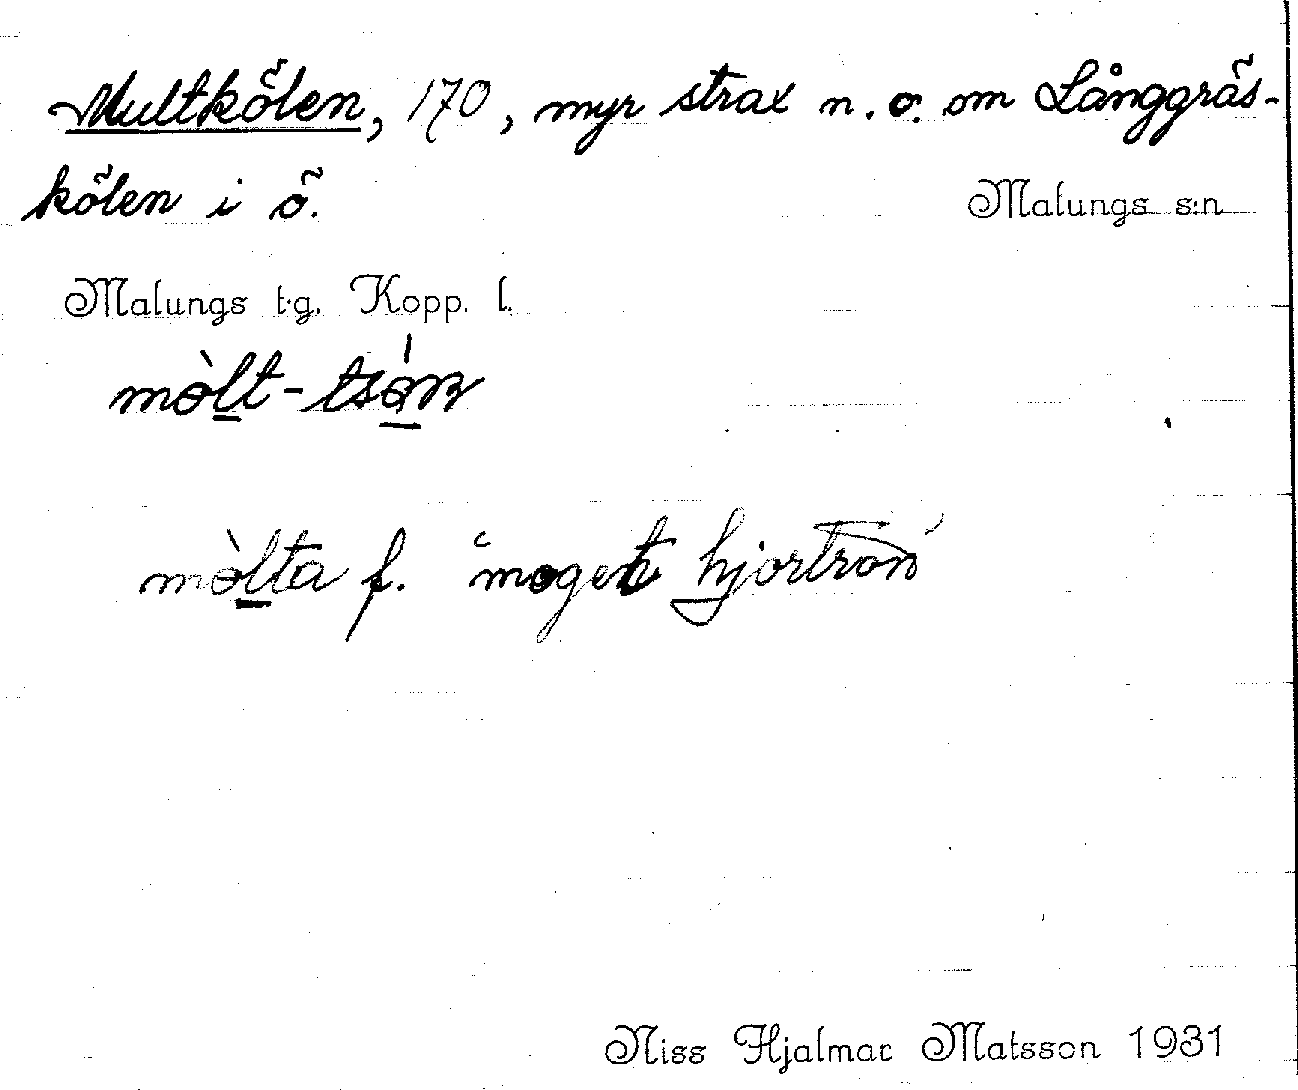 Multkölen, 170, myr strax n. o. om Långgräs-
kölen i ö.
Malungs s:n
Malungs t:g. Kopp. l.
mòlt-tsòn
mòlta f. "moget hjortron"
Niss Hjalmar Matsson 1931